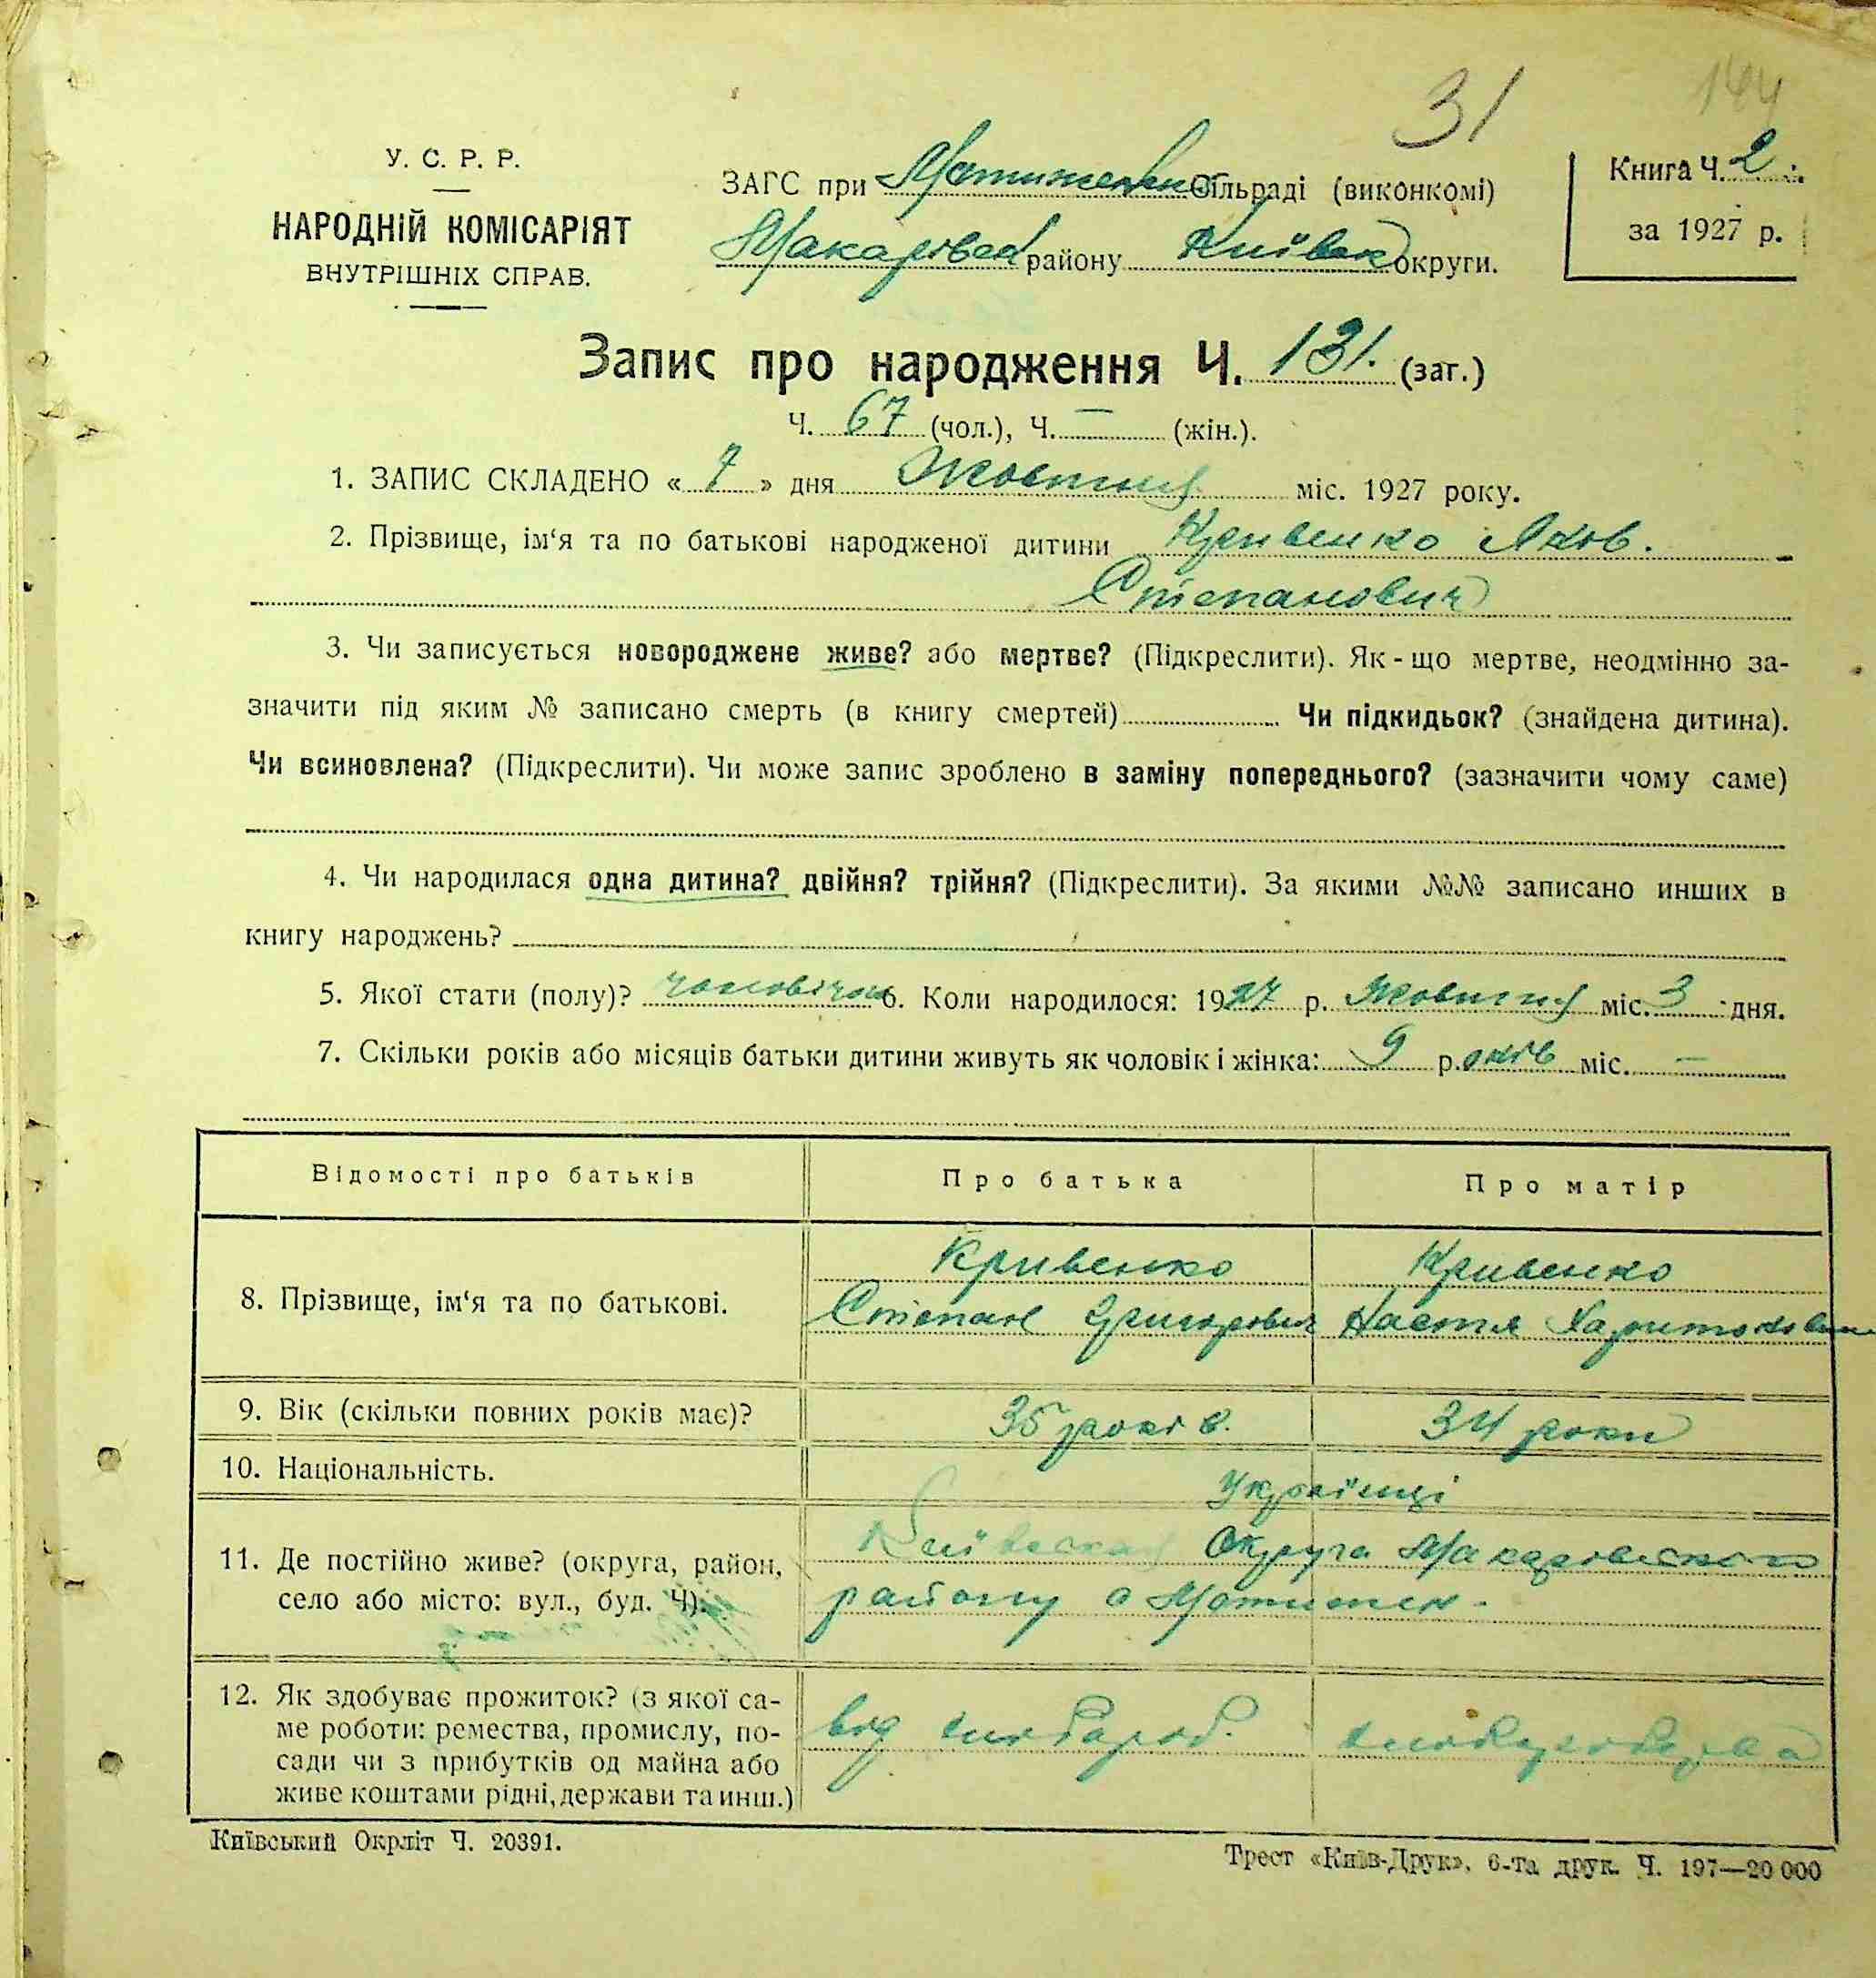 31
144
У. С. Р. Р.
НАРОДНІЙ КОМІСАРІЯТ
ВНУТРІШНІХ СПРАВ.
ЗАГС при Мотиженськ Сільраді (виконкомі)
Макарівськ району Київськ округи.
Книга Ч. 2.
за 1927 р.
Запис про народження Ч. 131. (заг.)
Ч. 67 (чол.), Ч. — (жін.).
1. ЗАПИС СКЛАДЕНО « 7 » дня Жовтня міс. 1927 року.
2. Прізвище, ім‘я та по батькові народженої дитини Кривенко Яков.
Степанович
3. Чи записується новороджене живе? або мертве? (Підкреслити). Як - що мертве, неодмінно за-
значити під яким № записано смерть (в книгу смертей) Чи підкидьок? (знайдена дитина).
Чи всиновлена? (Підкреслити). Чи може запис зроблено в заміну попереднього? (зазначити чому саме)
4. Чи народилася одна дитина? двійня? трійня? (Підкреслити). За якими №№ записано инших в
книгу народжень?
5. Якої стати (полу)? чоловічої 6. Коли народилося: 1927 р. Жовтня міс. 3 дня.
7. Скільки років або місяців батьки дитини живуть як чоловік і жінка: 9 р.оків міс. —
Відомості про батьків Про батька Про матір
8. Прізвище, ім‘я та по батькові. Кривенко Кривенко
Степан Григорович Настя Харитоновна
9. Вік (скільки повних років має)? 35 років. 34 роки
10. Національність. Українці
11. Де постійно живе? (округа, район, Київская Округа Макарівського
село або місто: вул., буд. Ч). району с Мотижен.
12. Як здобуває прожиток? (з якої са-
ме роботи: ремества, промислу, по- від хлібороб. хліборобства
сади чи з прибутків од майна або
живе коштами рідні, держави та инш.)
Київський Окрліт Ч. 20391.
Трест «Київ-Друк», 6-та друк. Ч. 197—20 000